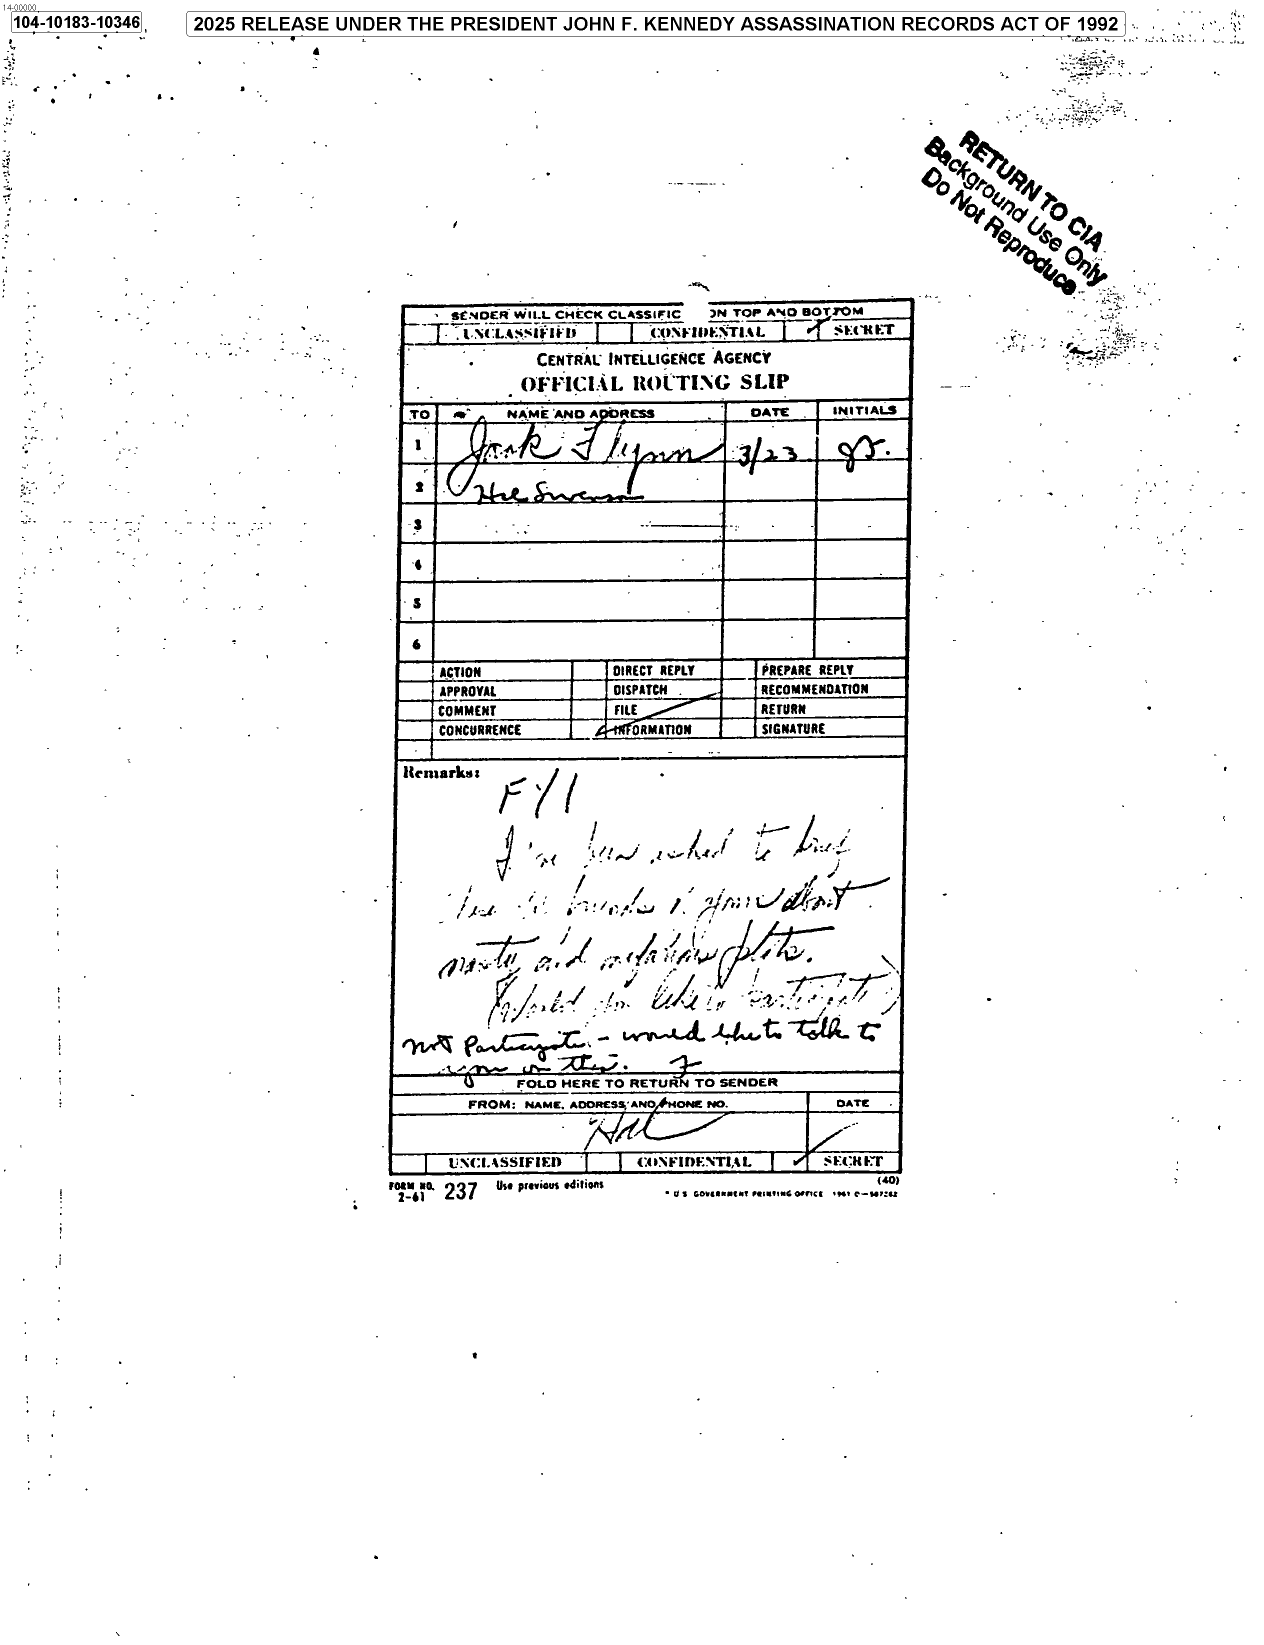 14-00000
104-10183-10346
2025 RELEASE UNDER THE PRESIDENT JOHN F. KENNEDY ASSASSINATION RECORDS ACT OF 1992
RETURN TO CIA
Background Use Only
Do Not Reproduce
SENDER WILL CHECK CLASSIFIC ON TOP AND BOTTOM
UNCLASSIFIED CONFIDENTIAL SECRET
CENTRAL INTELLIGENCE AGENCY
OFFICIAL ROUTING SLIP
TO NAME AND ADDRESS DATE INITIALS
1 Jack Flynn 3/23
2 Hal Swenson
3
4
5
6
ACTION DIRECT REPLY PREPARE REPLY
APPROVAL DISPATCH RECOMMENDATION
COMMENT FILE RETURN
CONCURRENCE INFORMATION SIGNATURE
Remarks:
FYI
I've been asked to brief
friends of yours about
nasty and nefarious plots.
(Would you like to participate)
Not Participate - would like to talk to
you on this. F
FOLD HERE TO RETURN TO SENDER
FROM: NAME, ADDRESS, AND PHONE NO. DATE
Hal
UNCLASSIFIED CONFIDENTIAL SECRET
FORM NO. 237 Use previous editions (40)
2-61 U S GOVERNMENT PRINTING OFFICE